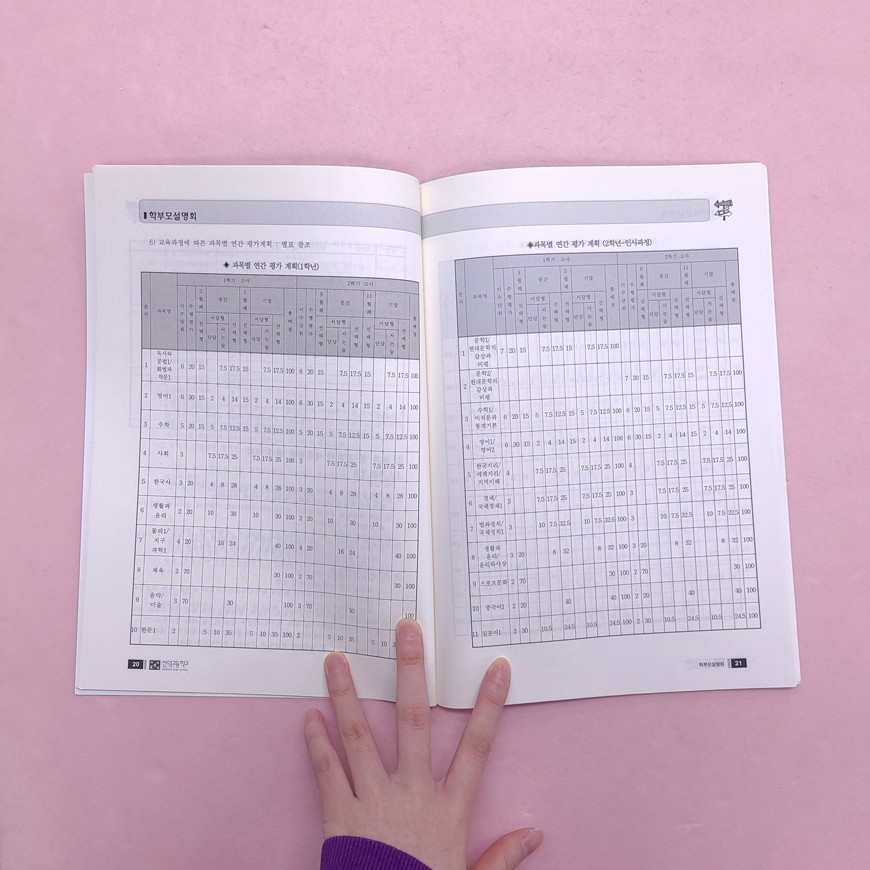 학부모설명회
6) 교육과정에 따른 과목별 연간 평가계획 : 별표 참조
◈ 과목별 연간 평가 계획(1학년)
1학기 고사 2학기 고사
순서 과목명 이수단위 수행평가 3월례 중간 5월례 기말 총배점 이수단위 수행평가 9월례 중간 11월례 기말 총배점
선택형 서답형 선택형 서답형 선택형 서답형 선택형 서답형
단답 서논술 단답 서논술 단답 서논술 단답 서논술
1 독서와문법1/화법과작문1 6 20 15 7.5 17.5 15 7.5 17.5 100 6 20 15 7.5 17.5 15 7.5 17.5 100
2 영어1 6 30 15 2 4 14 15 2 4 14 100 6 30 15 2 4 14 15 2 4 14 100
3 수학 5 20 15 5 7.5 12.5 15 5 7.5 12.5 100 5 20 15 5 7.5 12.5 15 5 7.5 12.5 100
4 사회 3 7.5 17.5 25 7.5 17.5 25 100 3 7.5 17.5 25 7.5 17.5 25 100
5 한국사 3 20 4 8 28 4 8 28 100 3 20 4 8 28 4 8 28 100
6 생활과윤리 2 20 10 30 10 30 100 2 20 10 30 10 30 100
7 물리1/지구과학1 4 20 16 24 40 100 4 20 16 24 40 100
8 체육 2 70 30 100 2 70 30 100
9 음악/미술 3 70 30 100 3 70 30 100
10 한문1 2 5 10 35 5 10 35 100 2 5 10 35 5 10
20
학부모설명회
◈과목별 연간 평가 계획 (2학년-인사과정)
1학기 고사 2학기 고사
순서 과목명 이수단위 수행평가 3월례 중간 5월례 기말 총배점 이수단위 수행평가 9월례 중간 11월례 기말 총배점
선택형 서답형 선택형 서답형 선택형 서답형 선택형 서답형
단답 서논술 단답 서논술 단답 서논술 단답 서논술
1 문학1/현대문학의감상과비평 7 20 15 7.5 17.5 15 7.5 17.5 100
2 문학2/현대문학의감상과비평 7 20 15 7.5 17.5 15 7.5 17.5 100
3 수학1/미적분과통계기본 6 20 15 5 7.5 12.5 15 5 7.5 12.5 100 6 20 15 5 7.5 12.5 15 5 7.5 12.5 100
4 영어1/영어2 6 30 15 2 4 14 15 2 4 14 100 6 30 15 2 4 14 15 2 4 14 100
5 한국지리/세계지리/지역이해 4 7.5 17.5 25 7.5 17.5 25 100 4 7.5 17.5 25 7.5 17.5 25 100
6 경제/국제경제1 3 7.5 17.5 25 7.5 17.5 25 100 3 7.5 17.5 25 7.5 17.5 25 100
7 법과정치/국제정치1 3 10 7.5 32.5 10 7.5 32.5 100 3 10 7.5 32.5 10 7.5 32.5 100
8 생활과윤리/윤리와사상 3 20 8 32 8 32 100 3 20 8 32 8 32 100
9 스포츠문화 2 70 30 100 2 70 30 100
10 중국어1 2 20 40 40 100 2 20 40 40 100
11 일본어1 2 30 10.5 24.5 10.5 24.5 100 2 30 10.5 24.5 10.5 24.5 100
학부모설명회 21